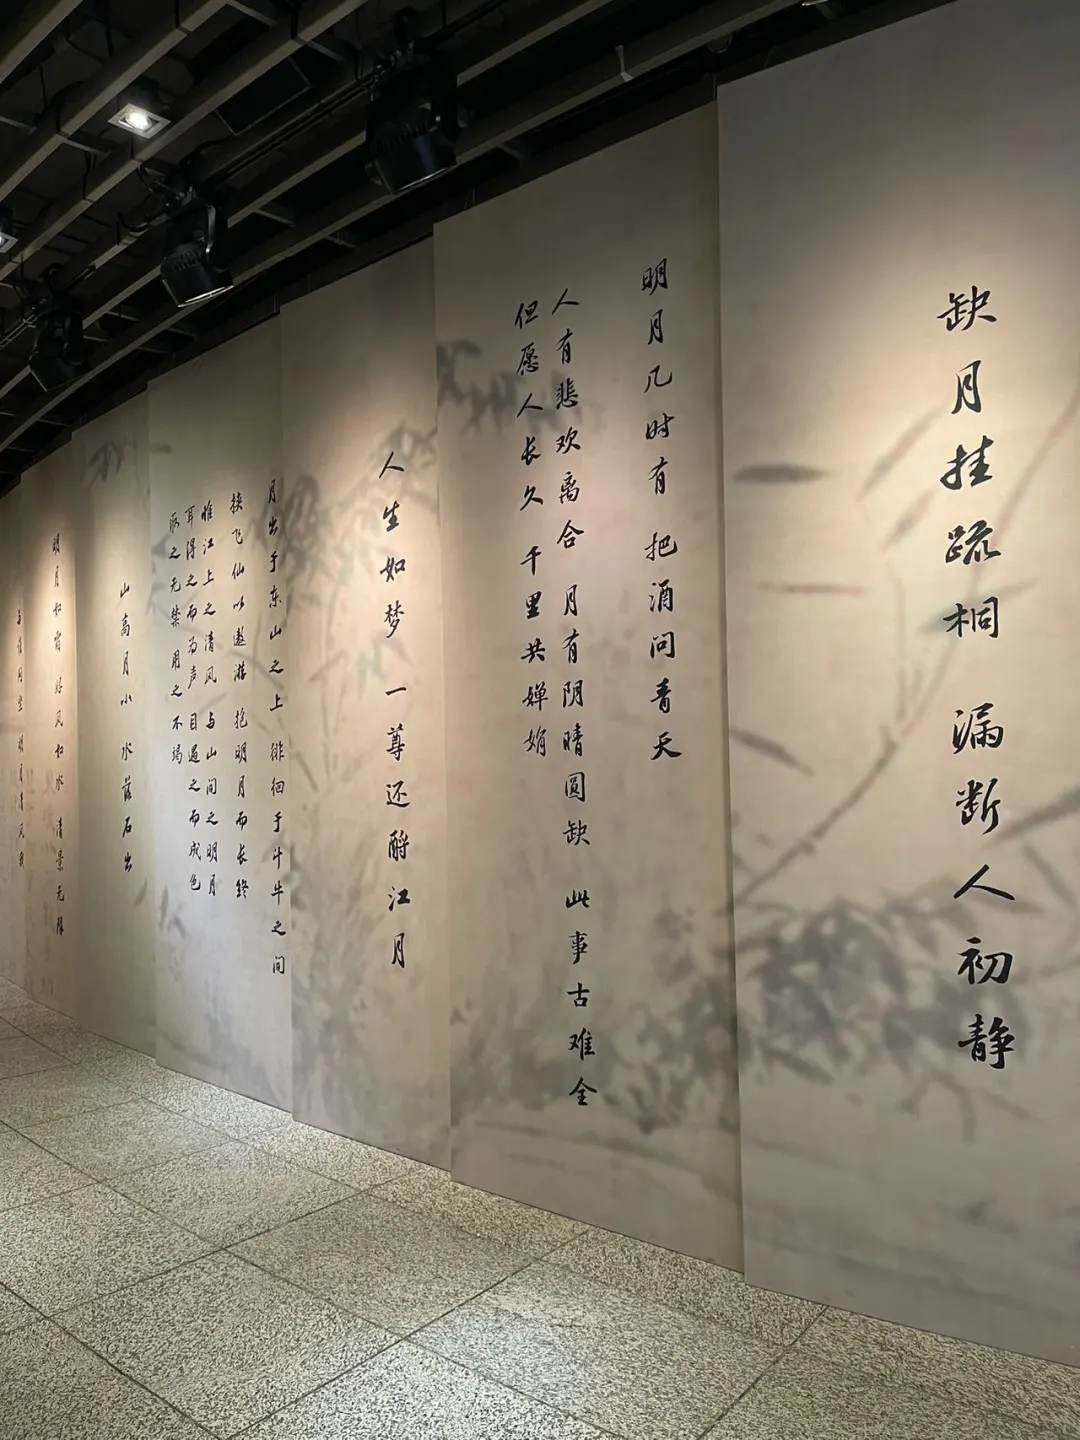 缺月挂疏桐 漏断人初静
明月几时有 把酒问青天
人有悲欢离合 月有阴晴圆缺 此事古难全
但愿人长久 千里共婵娟
人生如梦 一尊还酹江月
月出于东山之上 徘徊于斗牛之间
挟飞仙以遨游 抱明月而长终
惟江上之清风 与山间之明月
耳得之而为声 目遇之而成色
取之无禁 用之不竭
山高月小 水落石出
明月如霜 好风如水 清景无限
与谁同坐 明月清风我